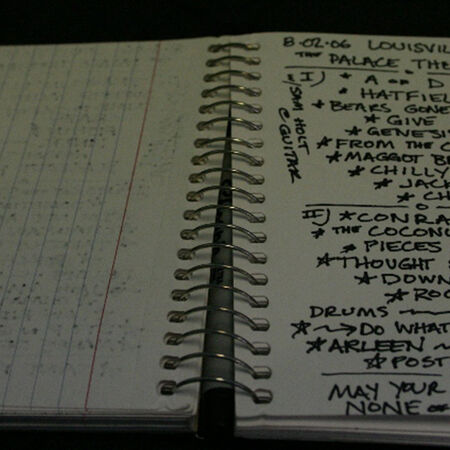 8·02·06 LOUISVIL
THE PALACE THE
I) * A OR D
W/ SAM HOLT @ GUITAR
* HATFIEL
* BEARS GONE
* GIVE
* GENESIS
* FROM THE C
* MAGGOT BR
* CHILLY
* JACK
* CH
II) * CONRA
* THE COCONU
* PIECES
* THOUGHT
* DOWN
* ROC
DRUMS
* → DO WHAT
* ARLEEN
* POST
MAY YOUR
NONE OF